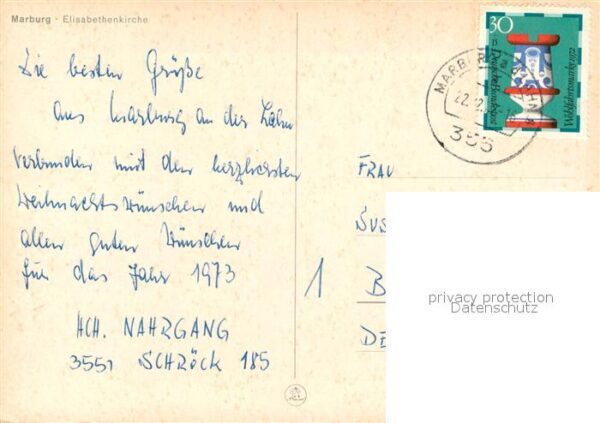 Marburg · Elisabethenkirche
Die besten Grüße
aus Marburg an der Lahn
verbunden mit den herzlichsten
Weihnachtswünschen und
allen guten Wünschen
für das Jahr 1973
HCH. NAHRGANG
3551 SCHRÖCK 185
30
Deutsche Bundespost
Wohlfahrtsmarke 1972
MARB
22.12
355
FRAU
SUS
1 B
DE
privacy protection
Datenschutz